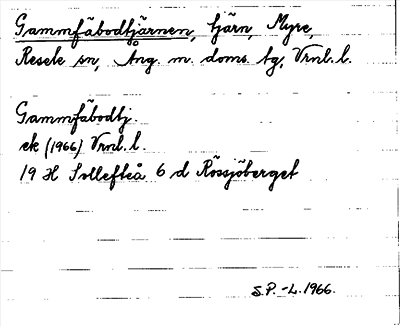 Gammfäbodtjärnen, tjärn, Myre,
Resele sn, Ång. m. doms. tg, Vrnl. l.
Gammfäbodtj.
ek (1966) Vrnl. l.
19 H Sollefteå 6 d Rössjöberget
S.P. -L. 1966.